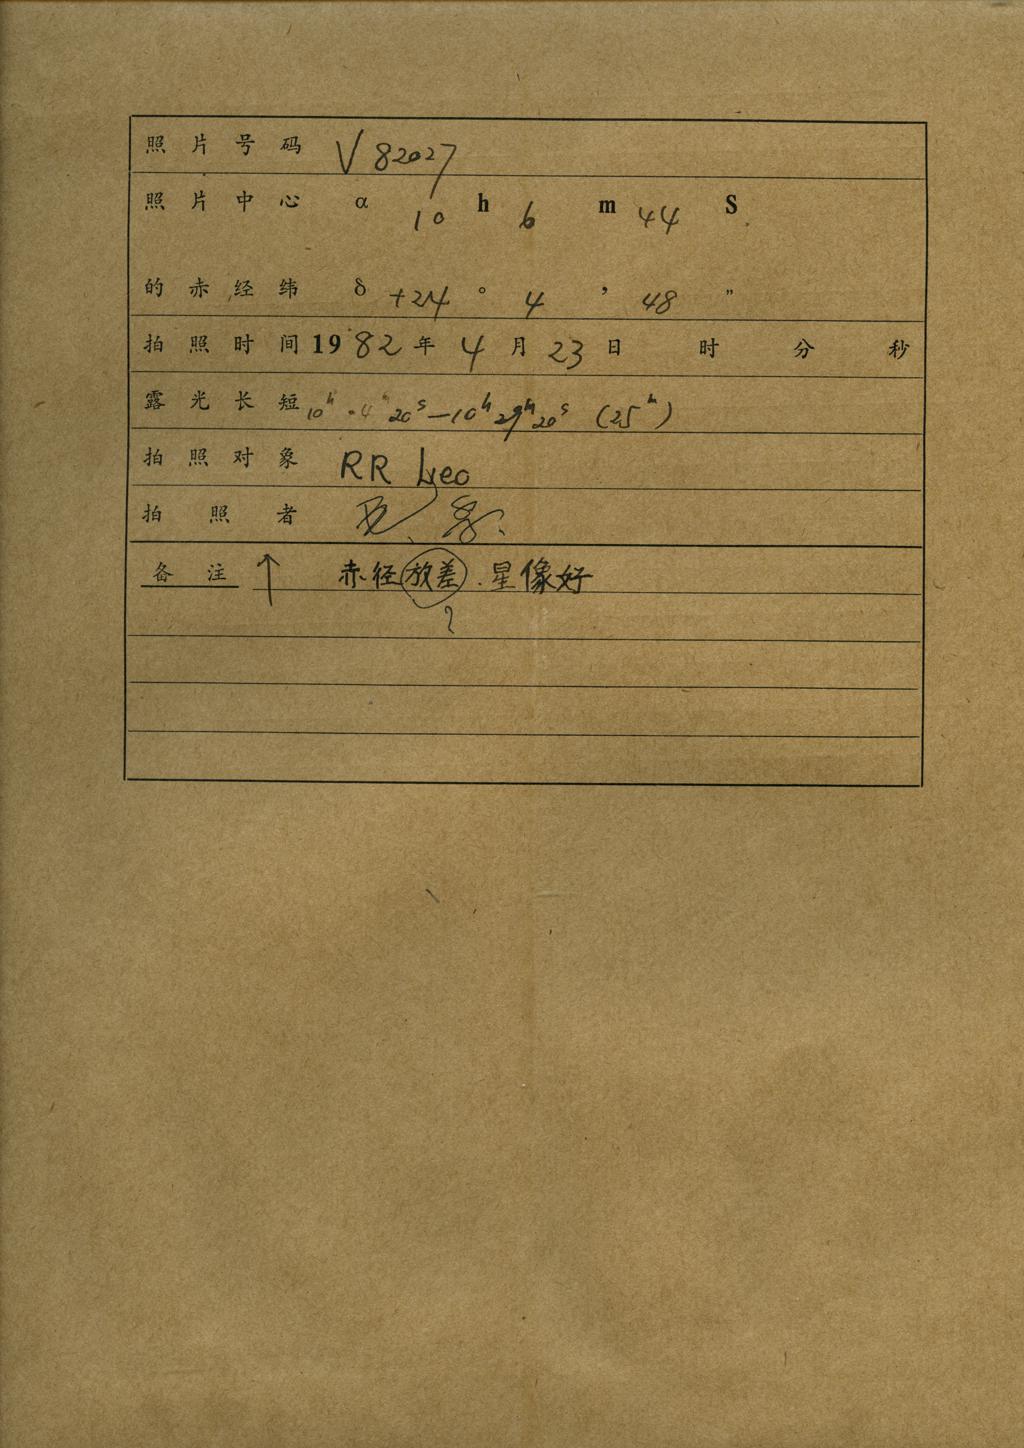 照片号码 V 82027
照片中心 α 10 h 6 m 44 S
的赤经纬 δ +24 ° 4 ' 48 "
拍照时间 1982年 4月 23日 时 分 秒
露光长短 10h 4m 20s — 10h 29m 20s (25m)
拍照对象 RR Leo
拍照者
备注 ↑ 赤径放差.星像好
?